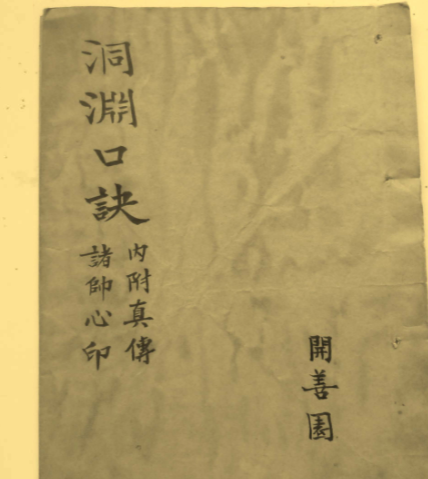 開善園
洞淵口訣
內附真傳
諸帥心印